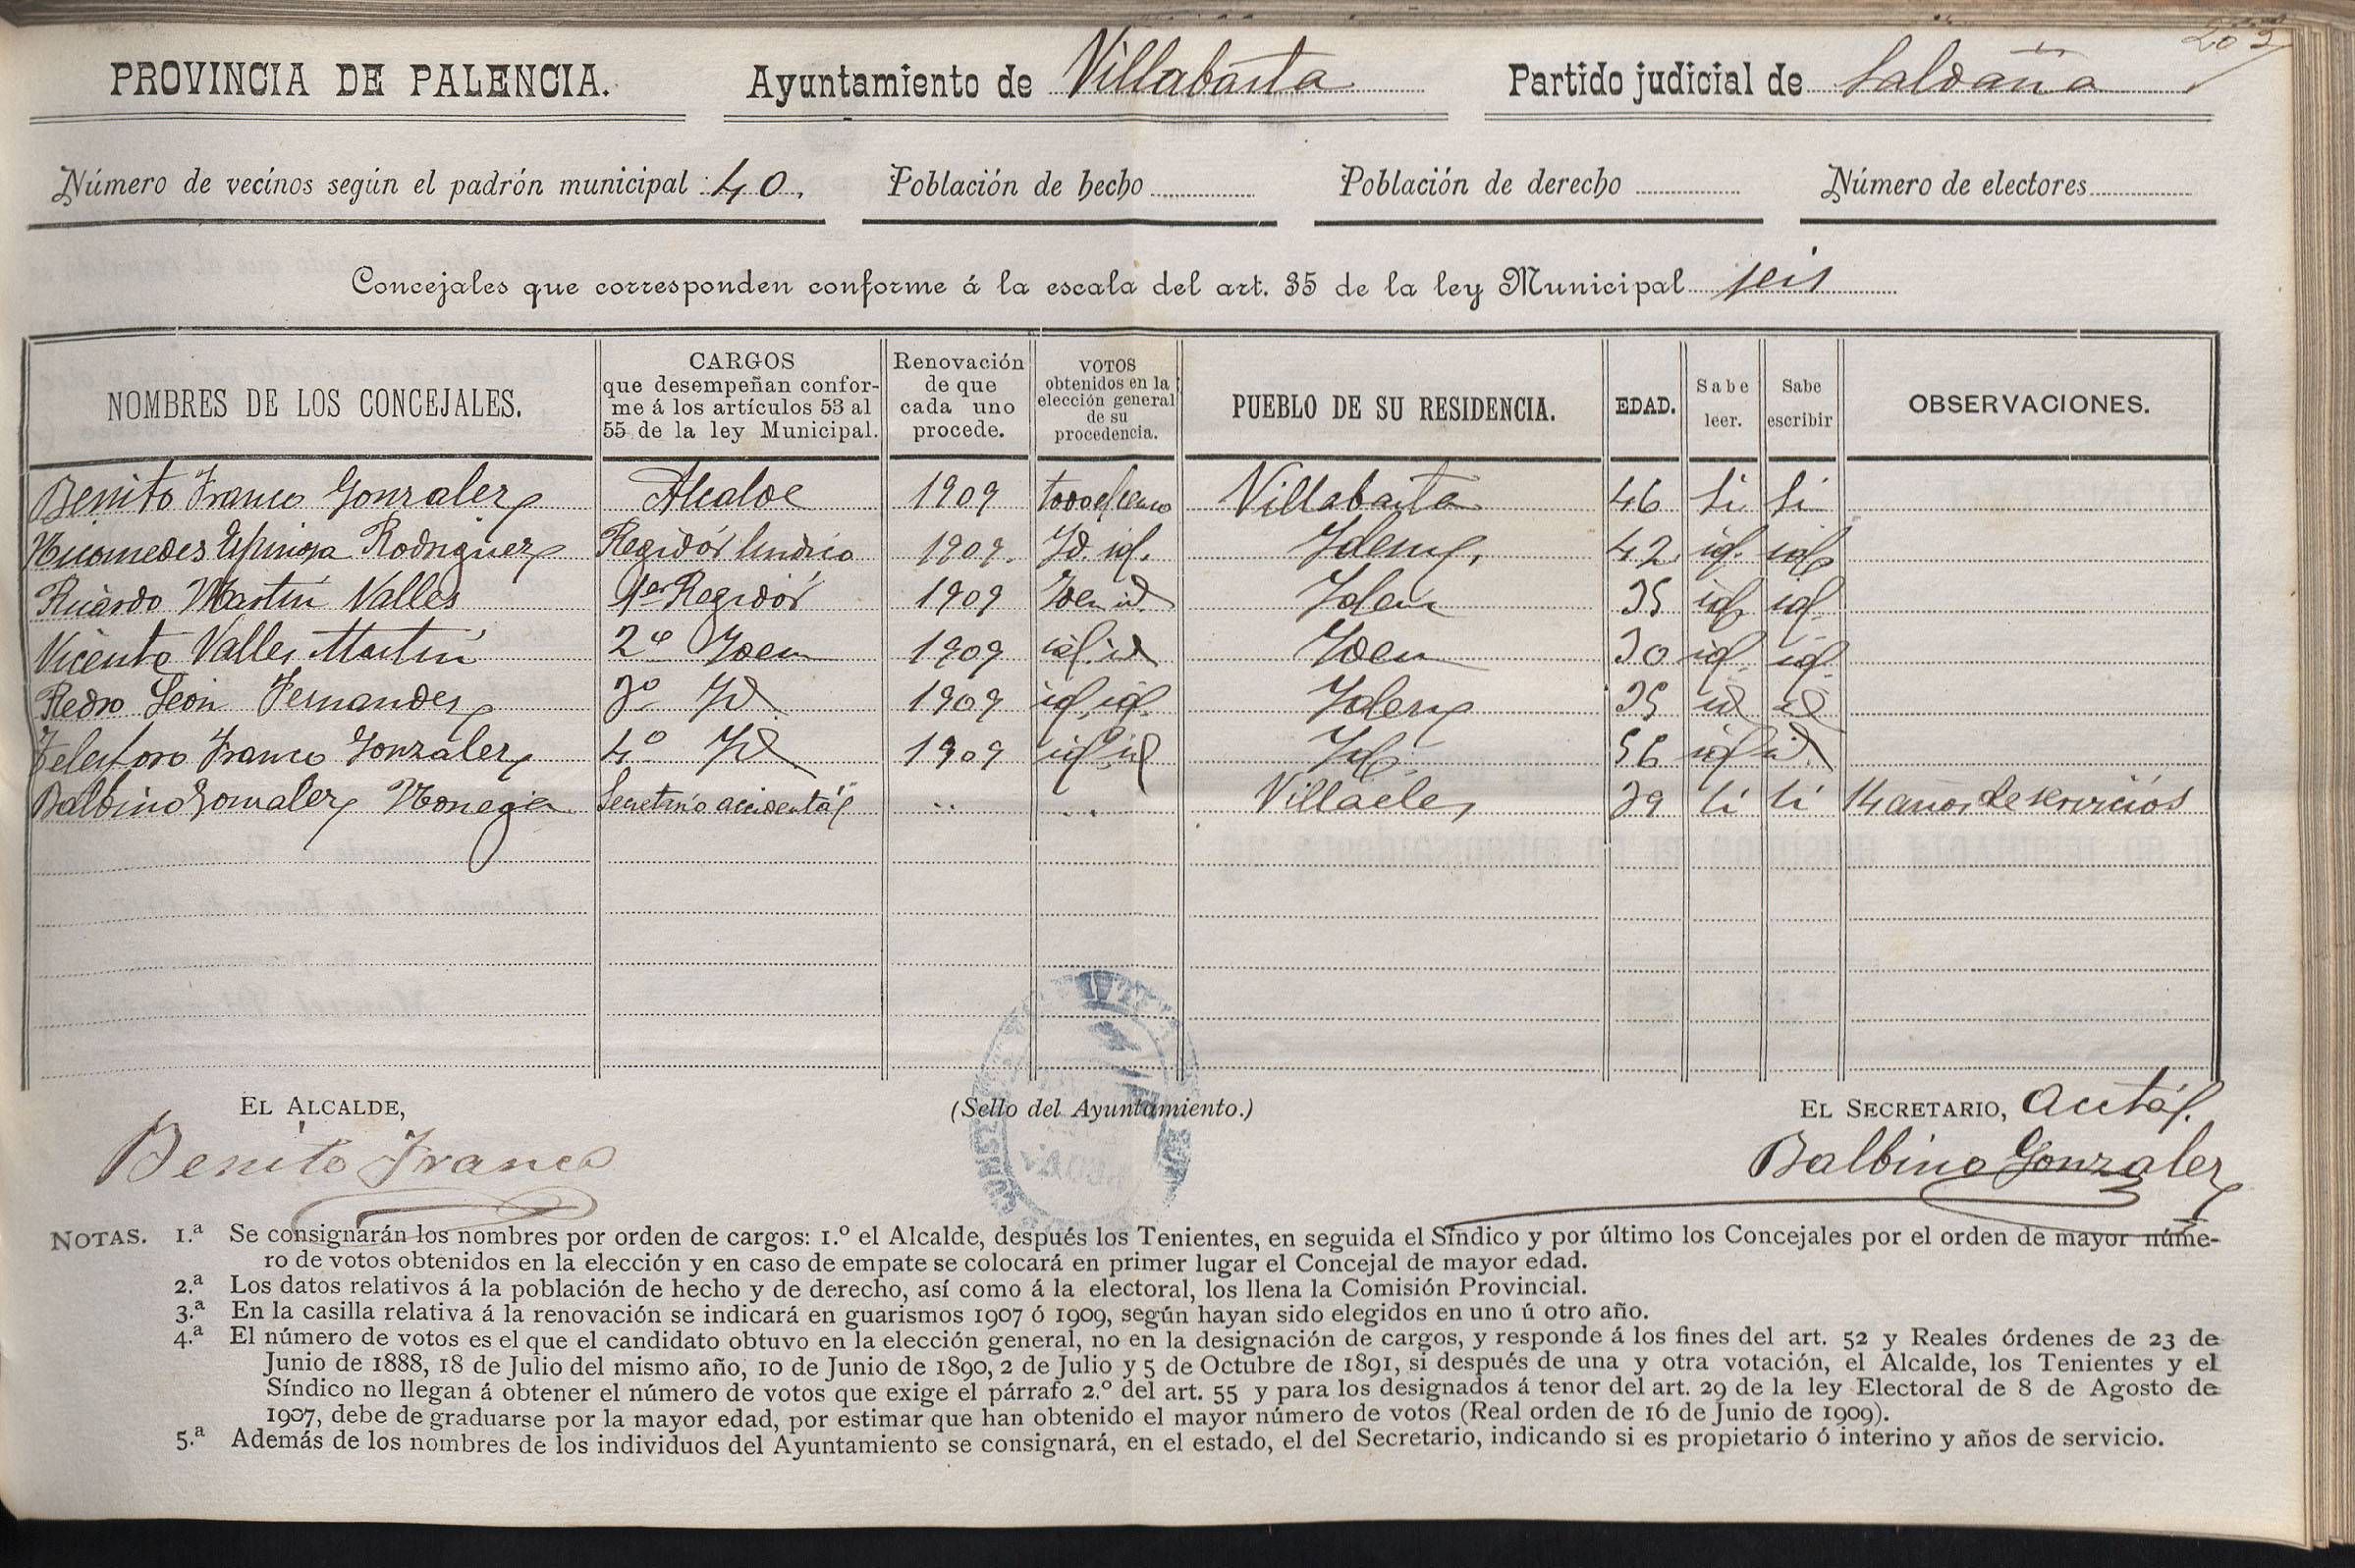 PROVINCIA DE PALENCIA. Ayuntamiento de Villabasta Partido judicial de Saldaña
Número de vecinos según el padrón municipal 40. Población de hecho Población de derecho Número de electores
Concejales que corresponden conforme á la escala del art. 35 de la ley Municipal seis
NOMBRES DE LOS CONCEJALES. CARGOS que desempeñan confor-me á los artículos 53 al 55 de la ley Municipal. Renovación de que cada uno procede. VOTOS obtenidos en la elección general de su procedencia. PUEBLO DE SU RESIDENCIA. EDAD. Sabe leer. Sabe escribir OBSERVACIONES.
Benito Franco Gonzalez Alcalde 1909 todo el censo Villabasta 46 Si Si
Nicomedes Espinosa Rodriguez Regidór Sindico 1909. Id. id. Idem, 42 id. id
Ricardo Martín Valles 1er Regidór 1909 Idem id. Idem 35 id id
Vicente Valles Martín 2º Idem 1909 id. id Idem 30 id. id.
Pedro León Fernandez 3º Id 1909 id, id. Idem 35 id id
Telesforo Franco González 4º Id 1909 id. id Id. 56 id id.
Balbino Gonzalez Noriega Secretrio accidentál Villaeles 39 Si Si 14 años de servicios
EL ALCALDE, (Sello del Ayuntamiento.) EL SECRETARIO, acctál.
Benito Franco Balbino Gonzalez
NOTAS. 1.ª Se consignarán los nombres por orden de cargos: 1.º el Alcalde, después los Tenientes, en seguida el Síndico y por último los Concejales por el orden de mayor núme-
ro de votos obtenidos en la elección y en caso de empate se colocará en primer lugar el Concejal de mayor edad.
2.ª Los datos relativos á la población de hecho y de derecho, así como á la electoral, los llena la Comisión Provincial.
3.ª En la casilla relativa á la renovación se indicará en guarismos 1907 ó 1909, según hayan sido elegidos en uno ú otro año.
4.ª El número de votos es el que el candidato obtuvo en la elección general, no en la designación de cargos, y responde á los fines del art. 52 y Reales órdenes de 23 de
Junio de 1888, 18 de Julio del mismo año, 10 de Junio de 1890, 2 de Julio y 5 de Octubre de 1891, si después de una y otra votación, el Alcalde, los Tenientes y el
Síndico no llegan á obtener el número de votos que exige el párrafo 2.º del art. 55 y para los designados á tenor del art. 29 de la ley Electoral de 8 de Agosto de
1907, debe de graduarse por la mayor edad, por estimar que han obtenido el mayor número de votos (Real orden de 16 de Junio de 1909).
5.ª Además de los nombres de los individuos del Ayuntamiento se consignará, en el estado, el del Secretario, indicando si es propietario ó interino y años de servicio.